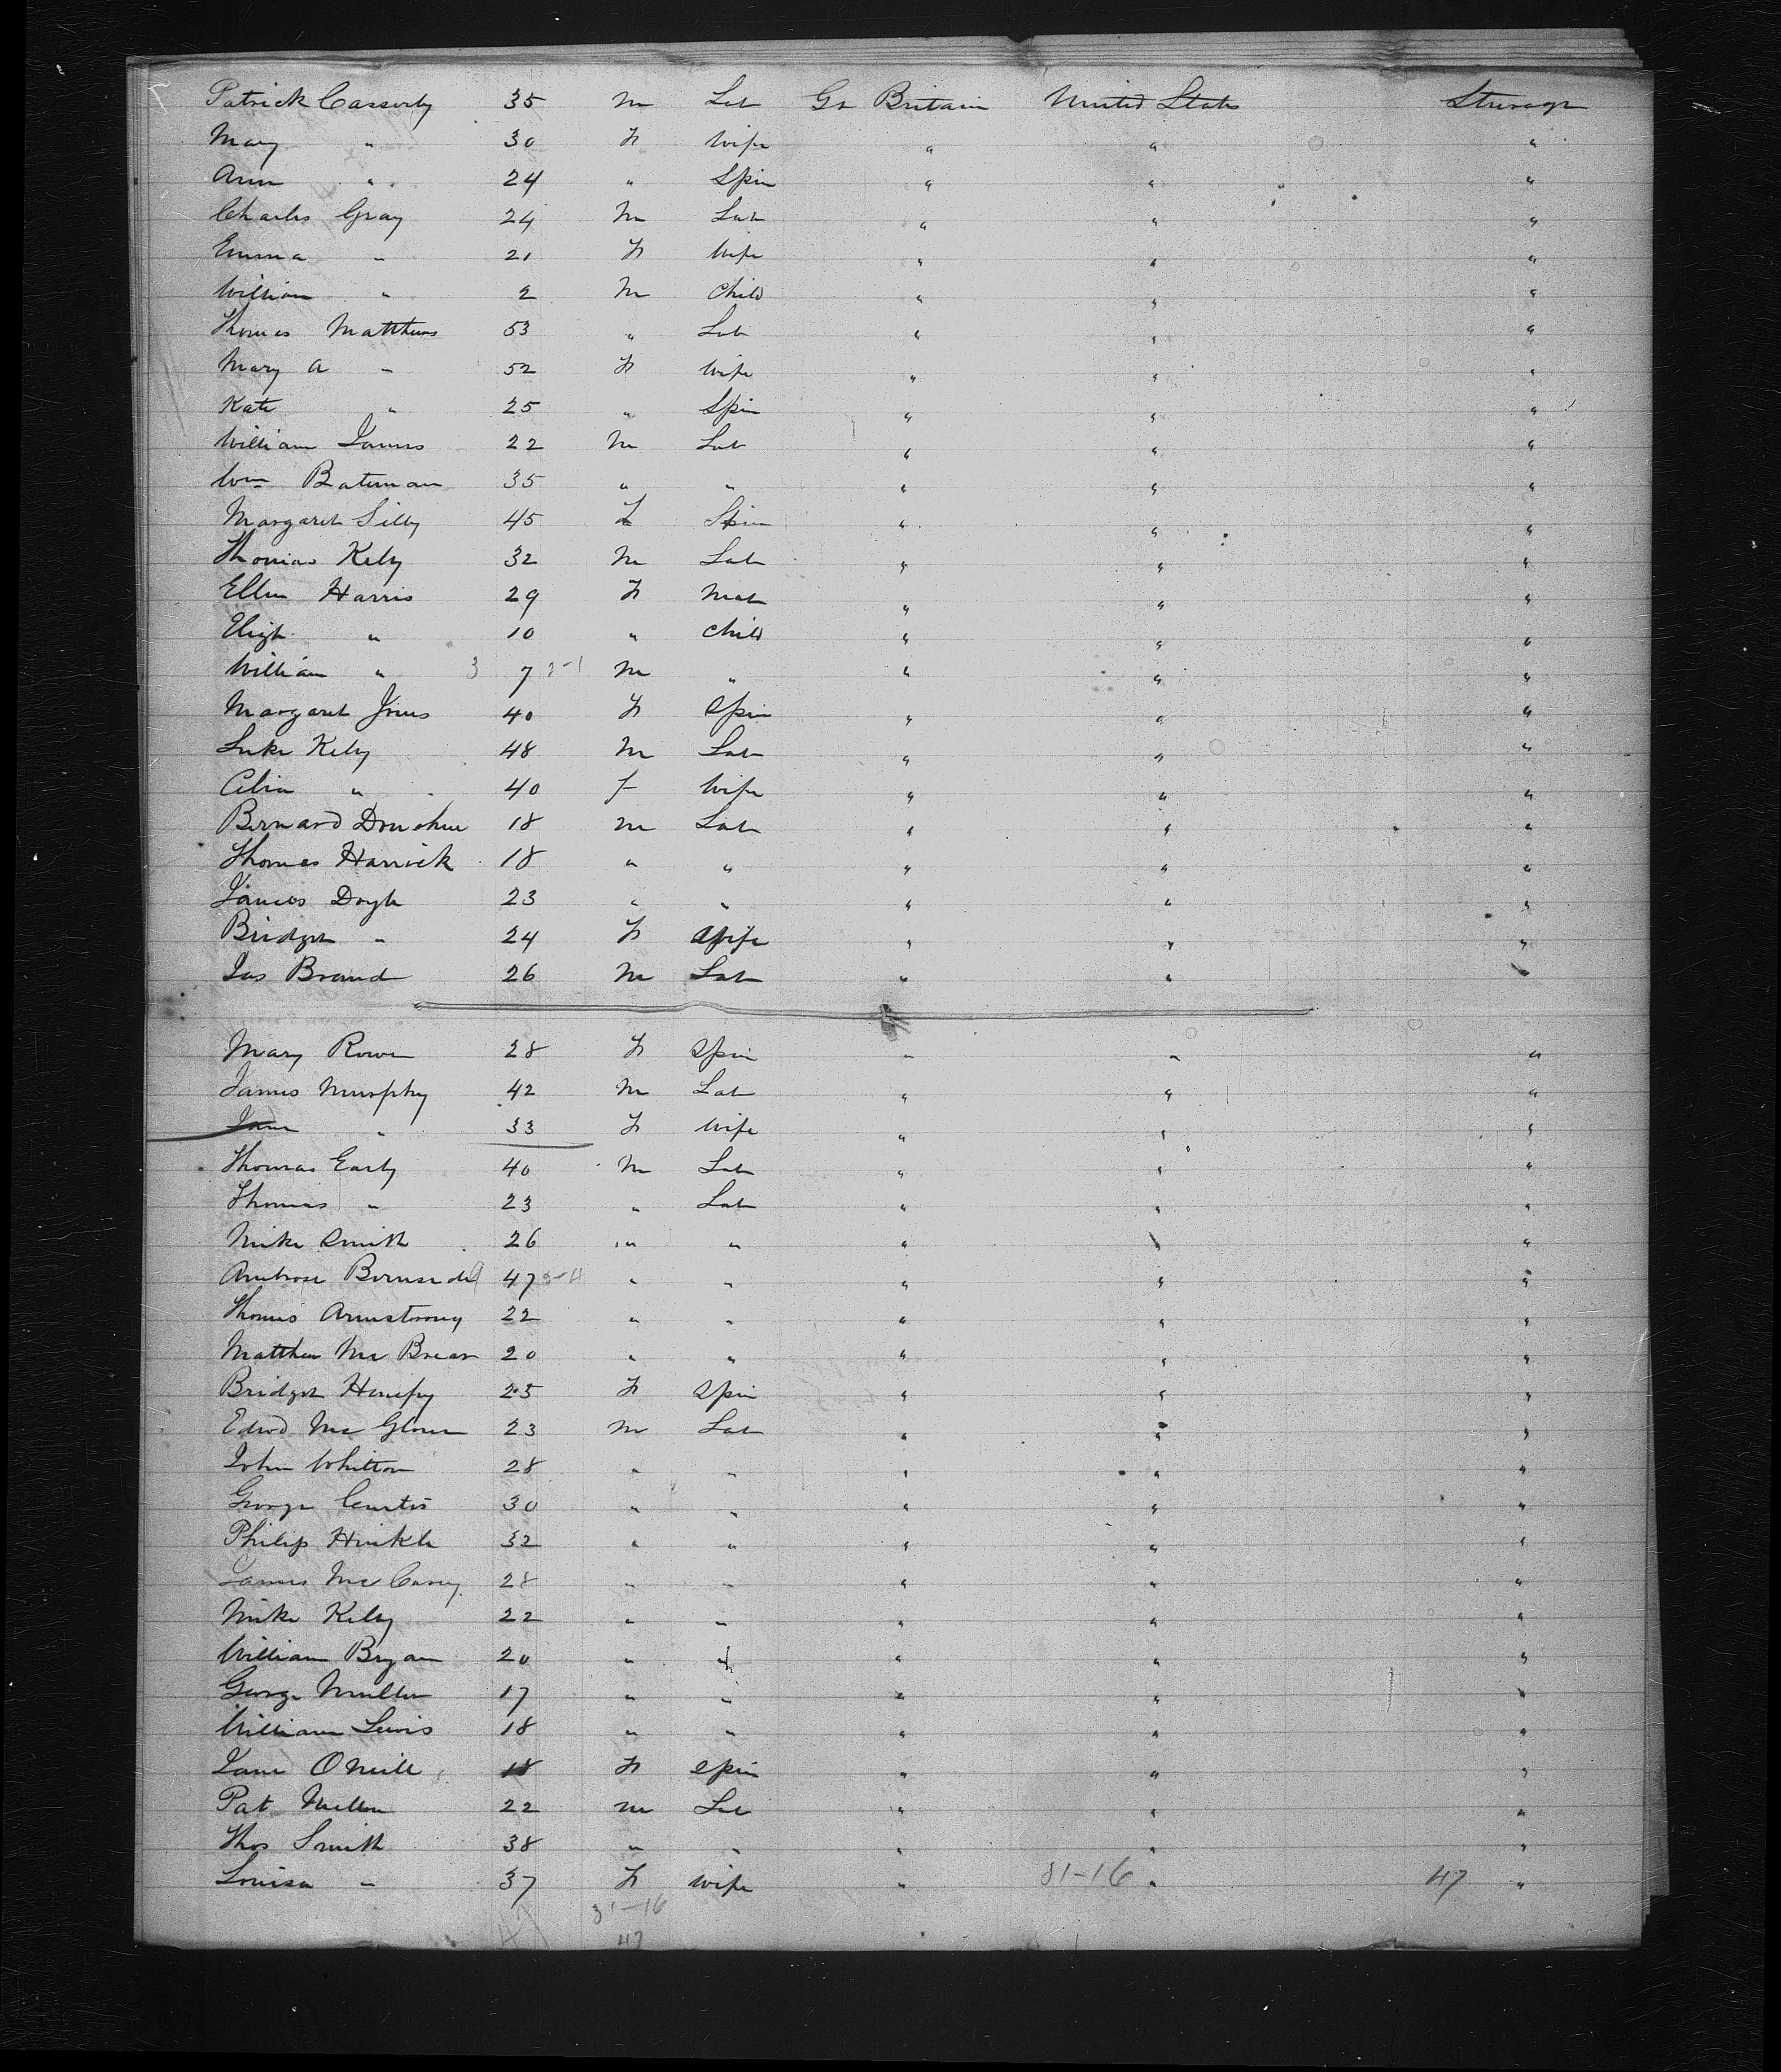 Patrick Casserly 35 m Lab Gr Britain United States Steerage
Mary " 30 F Wife " " "
Ann " 24 " Spin " " "
Charles Gray 24 m Lab " " "
Emma " 21 F Wife " " "
William " 2 m Child " " "
Thomas Matthews 53 " Lab " " "
Mary A " 52 F Wife " " "
Kate " 25 " Spin " " "
William James 22 m Lab " " "
Wm Bateman 35 " " " " "
Margaret 45 F Spin " " "
Thomas Kelly 32 m Lab " " "
Ellen Harris 29 F Mat " " "
Elizh " 10 " Child " " "
William " 3 7 m " " " "
Margaret Jones 40 F Spin " " "
Luke Kelly 48 m Lab " " "
Celia " 40 f Wife " " "
Bernard Donohue 18 m Lab " " "
Thomas 18 " " " " "
James Doyle 23 " " " " "
Bridget " 24 F Wife " " "
Jas Brand 26 m Lab " " "
Mary Rowe 28 F Spin " " "
James Murphy 42 m Lab " " "
Jane " 33 F Wife " " "
Thomas Early 40 m Lab " " "
Thomas " 23 " Lab " " "
Mike Smith 26 " " " " "
Ambrose 47 " " " " "
Thomas Armstrong 22 " " " " "
Matthew 20 " " " " "
Bridget 25 F Spin " " "
Edwd 23 m Lab " " "
John Whitton 28 " " " " "
George Curtis 30 " " " " "
Philip Hinkle 32 " " " " "
James 28 " " " " "
Mike Kelly 22 " " " " "
William Bryan 20 " " " " "
George 17 " " " " "
William Lewis 18 " " " " "
Jane O Neill 18 F Spin " " "
Pat 22 m Lab " " "
Thos Smith 38 " " " " "
Louisa " 37 F Wife " 31-16 " 47 "
31-16
47 47